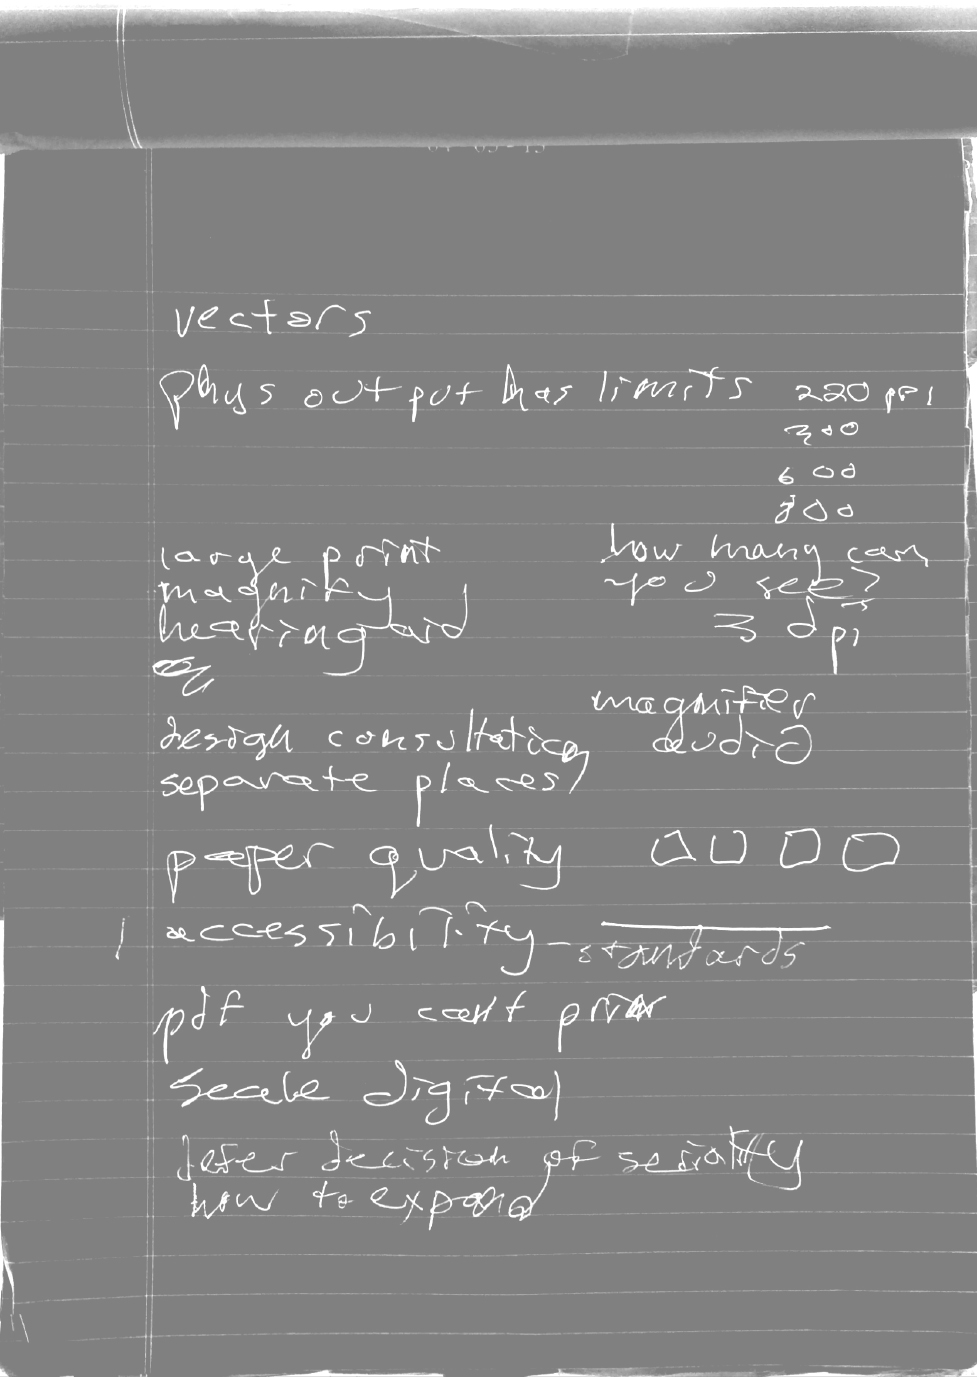 vectors
phys output has limits 220 ppi
300
600
800
large print
magnify
hearing aid
how many can
you see?
3 dpi
magnifier
audio
design consultation
separate places
paper quality
accessibility - standards
pdf you can't
scale digital
defer decision of seriality
how to expand